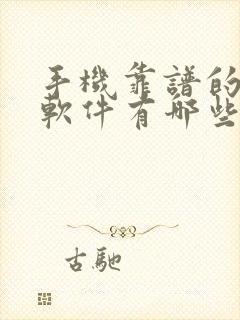 手機靠譜的
軟件有哪些
古馳